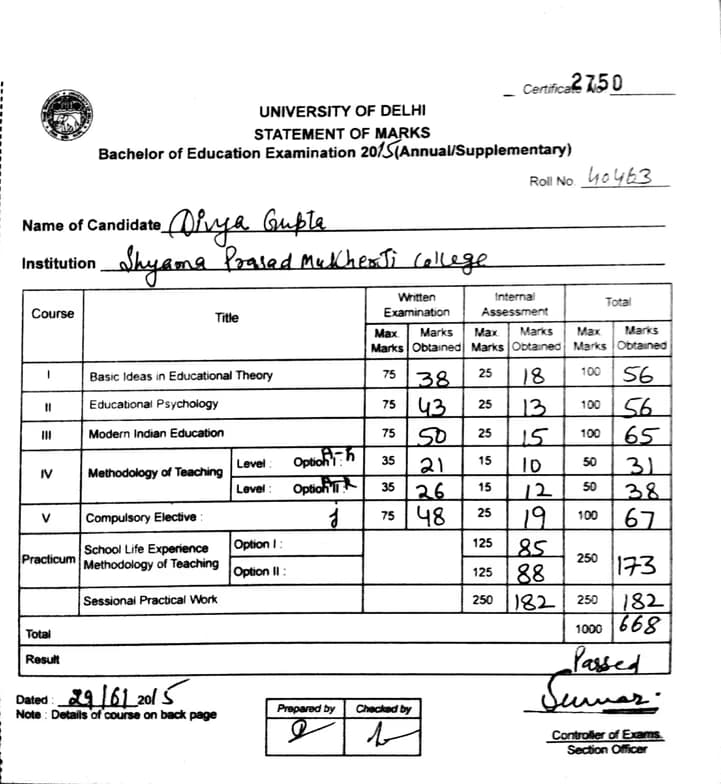 Certificate No 2750
UNIVERSITY OF DELHI
STATEMENT OF MARKS
Bachelor of Education Examination 2015 (Annual/Supplementary)
Roll No. 40463
Name of Candidate Divya Gupta
Institution Shyama Prasad Mukherji College
Course Title Written Examination Internal Assessment Total
Max. Marks Marks Obtained Max. Marks Marks Obtained Max. Marks Marks Obtained
I Basic Ideas in Educational Theory 75 38 25 18 100 56
II Educational Psychology 75 43 25 13 100 56
III Modern Indian Education 75 50 25 15 100 65
IV Methodology of Teaching Level : Option I : 35 21 15 10 50 31
Level : Option II : 35 26 15 12 50 38
V Compulsory Elective : j 75 48 25 19 100 67
Practicum School Life Experience Methodology of Teaching Option I : 125 85 250 173
Option II : 125 88
Sessional Practical Work 250 182 250 182
Total 1000 668
Result Passed
Dated : 29/6/2015
Note : Details of course on back page
Prepared by Checked by
Controller of Exams.
Section Officer